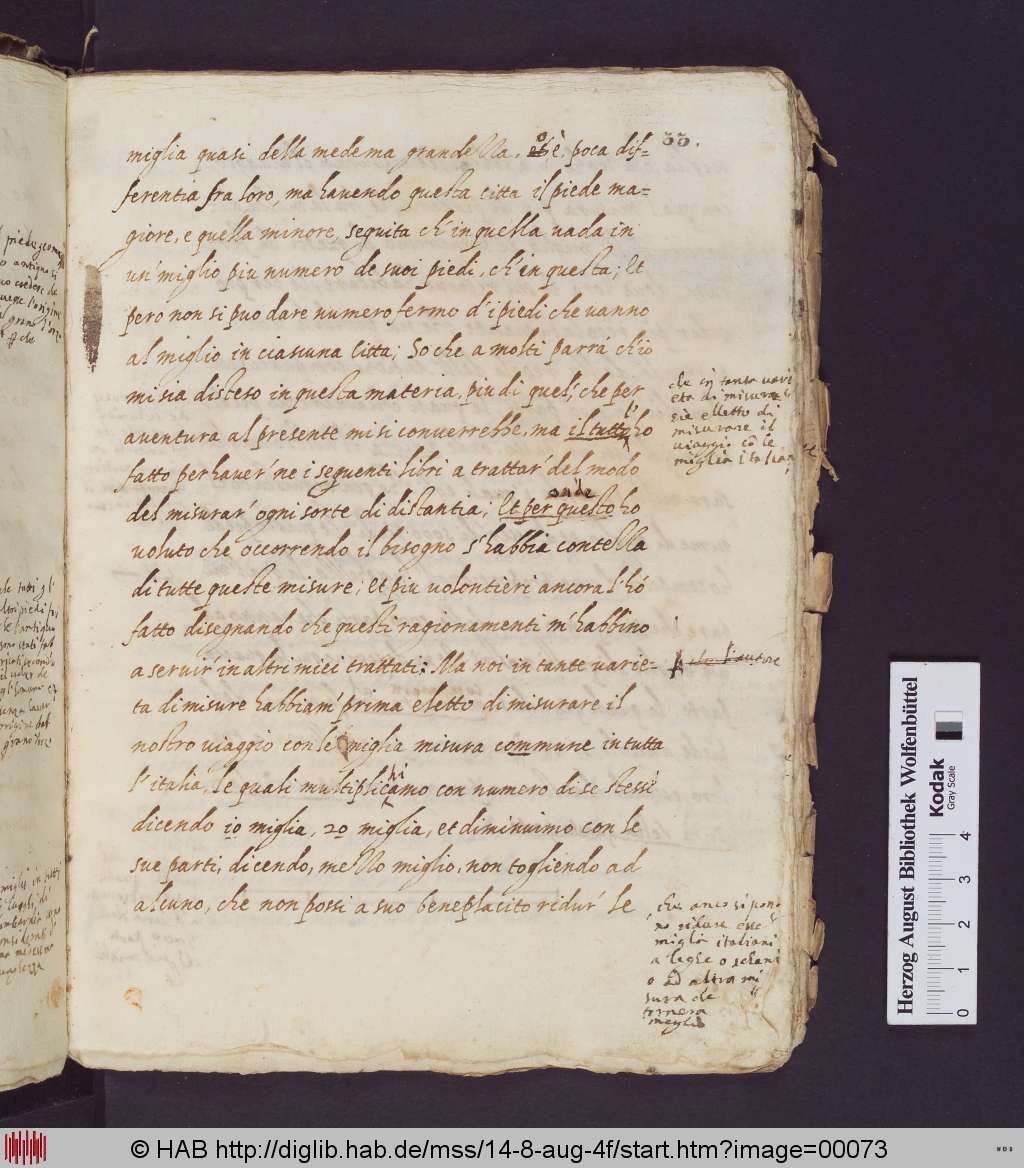 33.
miglia quasi della medema grandezza, o è, poca dif=
ferentia fra loro, ma havendo questa citta il piede ma=
giore, e quella minore, seguita ch' in quella vada in
un' miglio piu numero de suoi piedi, ch' in questa; Et
pero non si puo dare numero fermo d'i piedi che vanno
al miglio in ciascuna Citta; So che a molti parrá ch'io
mi sia disteso in questa materia, piu di quel', che per
aventura al presente mi si converrebbe, ma il tutto l'ho
fatto per haver' ne i seguenti libri a trattar' del modo
del misurar' ogni sorte di distantia; Et per questo ho
onde
voluto che occorrendo il bisogno s'habbia contezza
di tutte queste misure; Et piu volontieri ancora l'hó
fatto disegnando che questi ragionamenti m'habbino
a servir' in altri miei trattati: Ma noi in tante varie=
ta di misure habbiam' prima eletto di misurare il
nostro viaggio con le miglia misura commune in tutta
l'italia, le quali multiplichiamo con numero di se stessi
dicendo 10 miglia, 20 miglia, et diminuimo con le
sue parti, dicendo, mezzo miglio, non togliendo ad
alcuno, che non possi a suo beneplacito ridur' le
che in tanta vari
eta di misure
sie elletto di
misurare il
viaggio cō le
miglia italiane
che l'autore
che anco si pono
no ridure esse
miglia italiani
a leghe o schani
o ad altra mi
sura che
tornera
meglio
Herzog August Bibliothek Wolfenbüttel
Kodak
Gray Scale
0 1 2 3 4
© HAB http://diglib.hab.de/mss/14-8-aug-4f/start.htm?image=00073